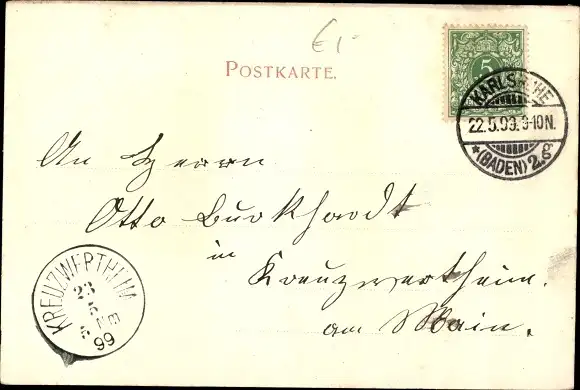 €1-
POSTKARTE.
5
KARLSRUHE
22.5.99.9-10N.
*(BADEN)2.g
An Herrn
Otto Burkhardt
in
Kreuzwertheim
am Main.
KREUZWERTHEIM
23
5
NE
99